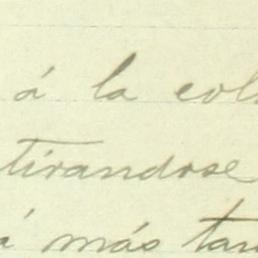 á la col
tirandose
á más tar